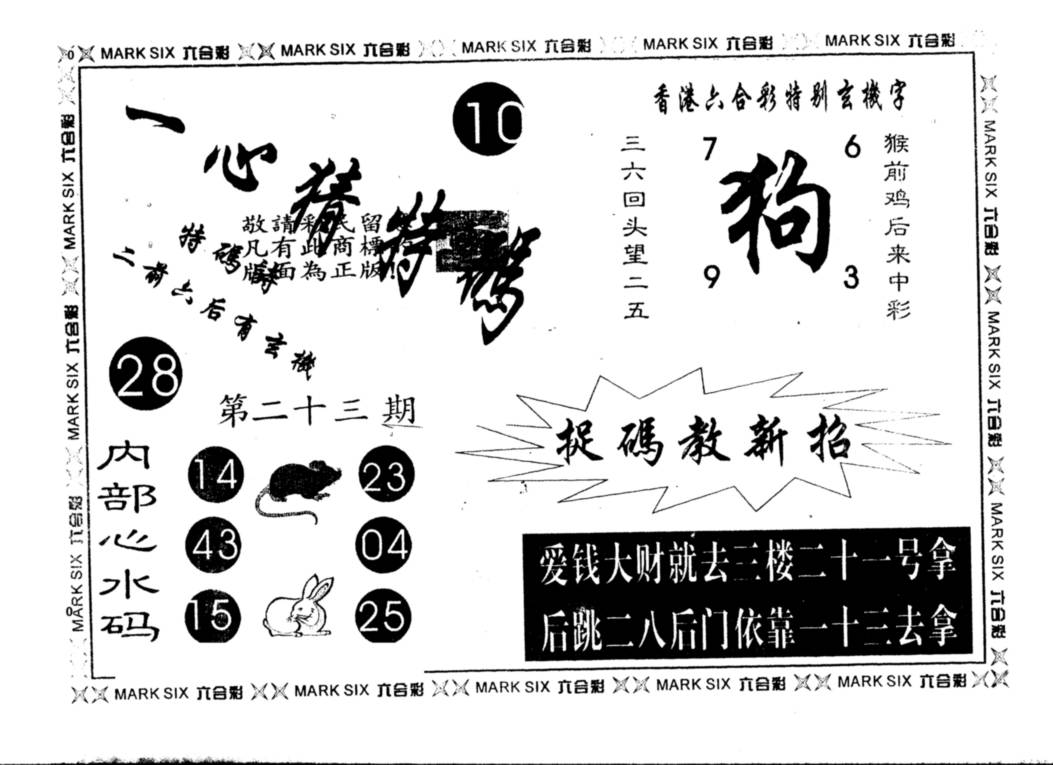 MARK SIX 六合彩 MARK SIX 六合彩 MARK SIX 六合彩 MARK SIX 六合彩 MARK SIX 六合彩
MARK SIX 六合彩 MARK SIX 六合彩 MARK SIX 六合彩
MARK SIX 六合彩 MARK SIX 六合彩 MARK SIX 六合彩
一心猜特碼
10
敬請彩民留
凡有此商標
版面為正版!
特碼詩
二前六后有玄機
香港六合彩特别玄機字
三六回头望二五
7
6
狗
9
3
猴前鸡后来中彩
28
第二十三期
内部心水码
14
23
43
04
15
25
捉碼教新招
爱钱大财就去三楼二十一号拿
后跳二八后门依靠一十三去拿
MARK SIX 六合彩 MARK SIX 六合彩 MARK SIX 六合彩 MARK SIX 六合彩 MARK SIX 六合彩